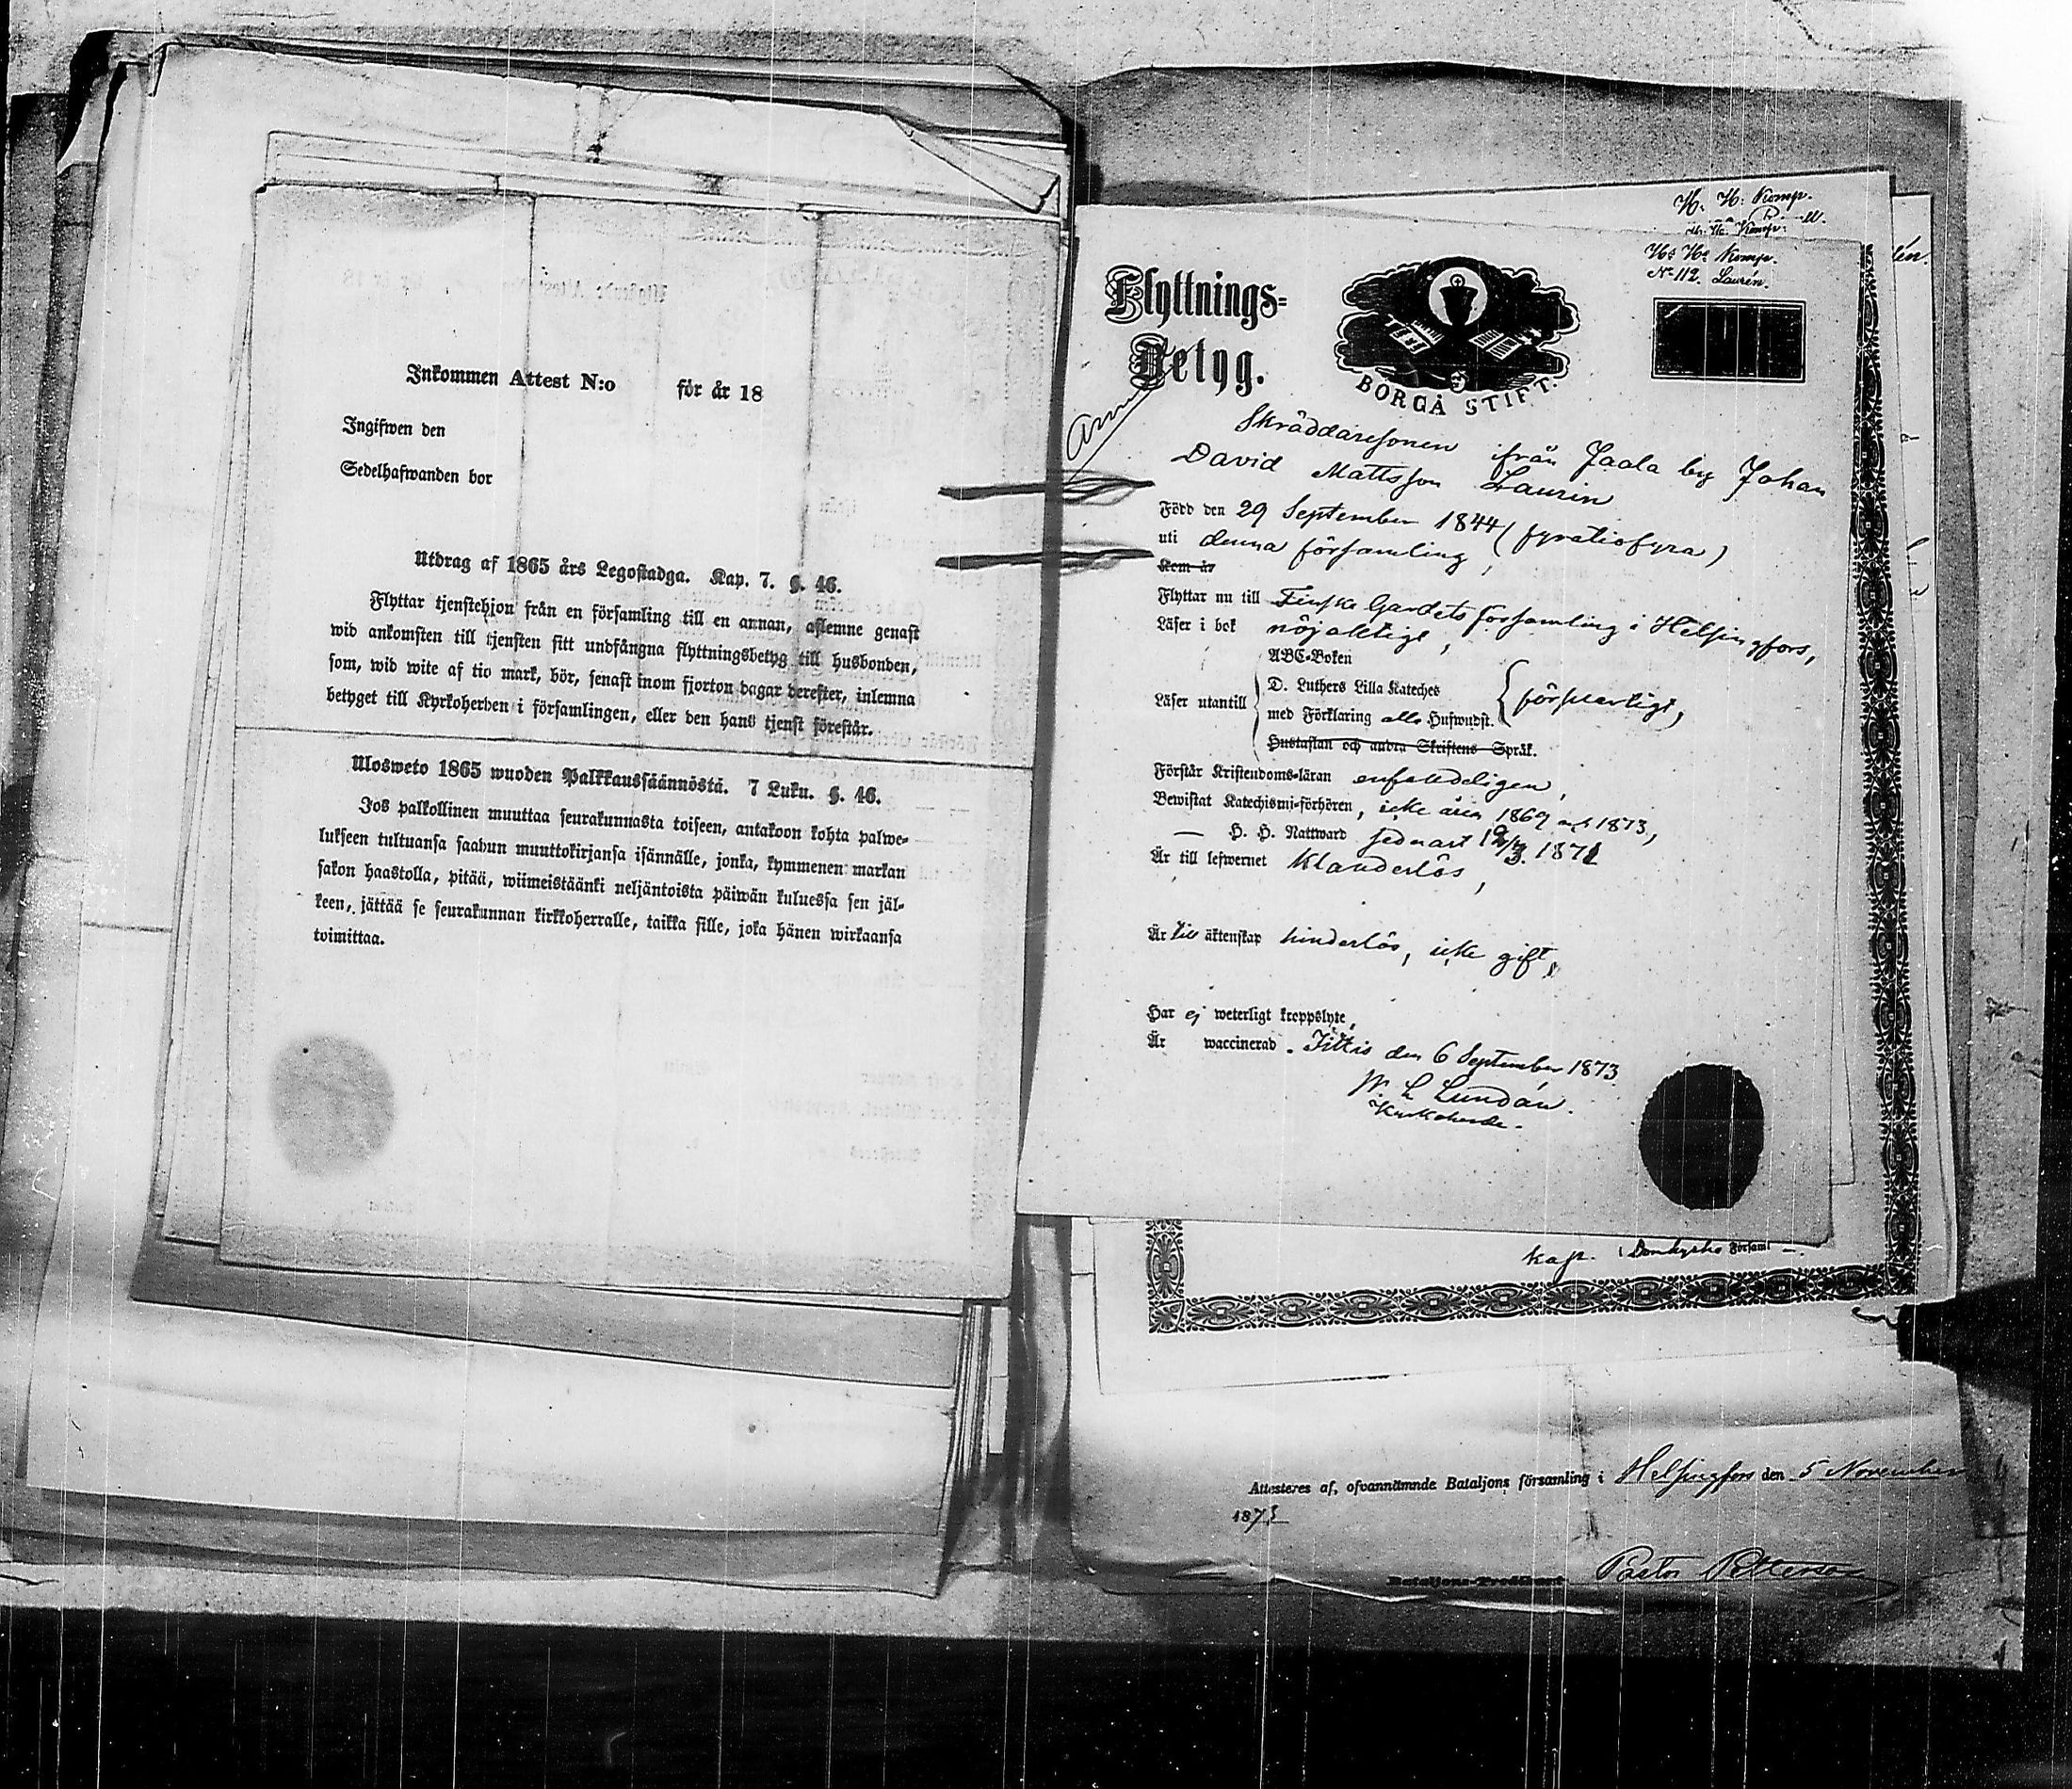 Inkommen Attest N:o för år 18
Ingifwen den
Sedelhafwanden bor
Utdrag af 1865 års Legostadga. Kap. 7. §. 46.
Flyttar tjenstehjon från en församling till en annan, aflemne genast
wid ankomsten till tjensten sitt undfångna flyttningsbetyg till husbonden,
som, wid wite af tio mark, bör, senast inom fjorton dagar derefter, inlemna
betyget till Kyrkoherden i församlingen, eller den hans tjenst förestår.
Ulosweto 1865 wuoden Palkkaussäännöstä. 7 Luku. §. 46.
Jos palkollinen muuttaa seurakunnasta toiseen, antakoon kohta palwe-
lukseen tultuansa saadun muuttokirjansa isännälle, jonka, kymmenen markan
sakon haastolla, pitää, wiimeistäänki neljäntoista päiwän kuluessa sen jäl-
keen, jättää se seurakunnan kirkkoherralle, taikka sille, joka hänen wirkaansa
toimittaa.
H. H. Komp.
H: H: Komp.
No 112. Laurén.
Flyttnings-
Betyg.
BORGÅ STIFT.
Skräddaresonen ifrån Jaala by Johan
David Mattsson Laurin
Född den 29 September 1844 (fyratiofyra)
uti denna församling,
Kom år
Flyttar nu till Finska Gardets församling i Helsingfors,
Läser i bok nöjaktigt,
ABC-Boken
D. Luthers Lilla Kateches
Läser utantill med Förklaring alla Hufwudst. försvarligt,
Hustaflan och andra Skriftens Språk.
Förstår Kristendoms-läran enfaldeligen,
Bewistat Katechismi-förhören, icke åren 1869 och 1873,
— H. H. Nattward sednast 187
Är till lefwernet klanderlös,
Är till äktenskap hinderlös, icke gift,
Har ej weterligt kroppslyte,
Är waccinerad. Jittis den 6 September 1873
W L Lundán.
Kyrkoherde.
kap. i Församl
Attesteres af, ofvannämnde Bataljons församling i Helsingfors den 5 November
1873
Bataljons-Predikant Pastor Petterson